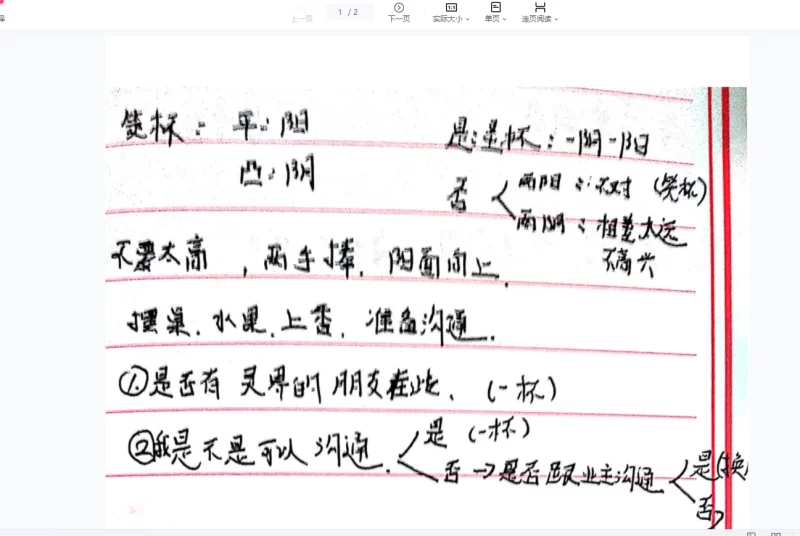 上一页
1 / 2
下一页
实际大小
单页
连页阅读
筊杯：平：阳
凸：阴
是：圣杯：一阴一阳
否 两阳：不对（笑杯）
两阴：相差太远
不高兴
不要太高，两手捧，阳面向上．
摆桌．水果．上香．准备沟通．
①是否有灵界的朋友在此．（一杯）
②我是不是可以沟通．是（一杯）
否→是否跟业主沟通 是
否